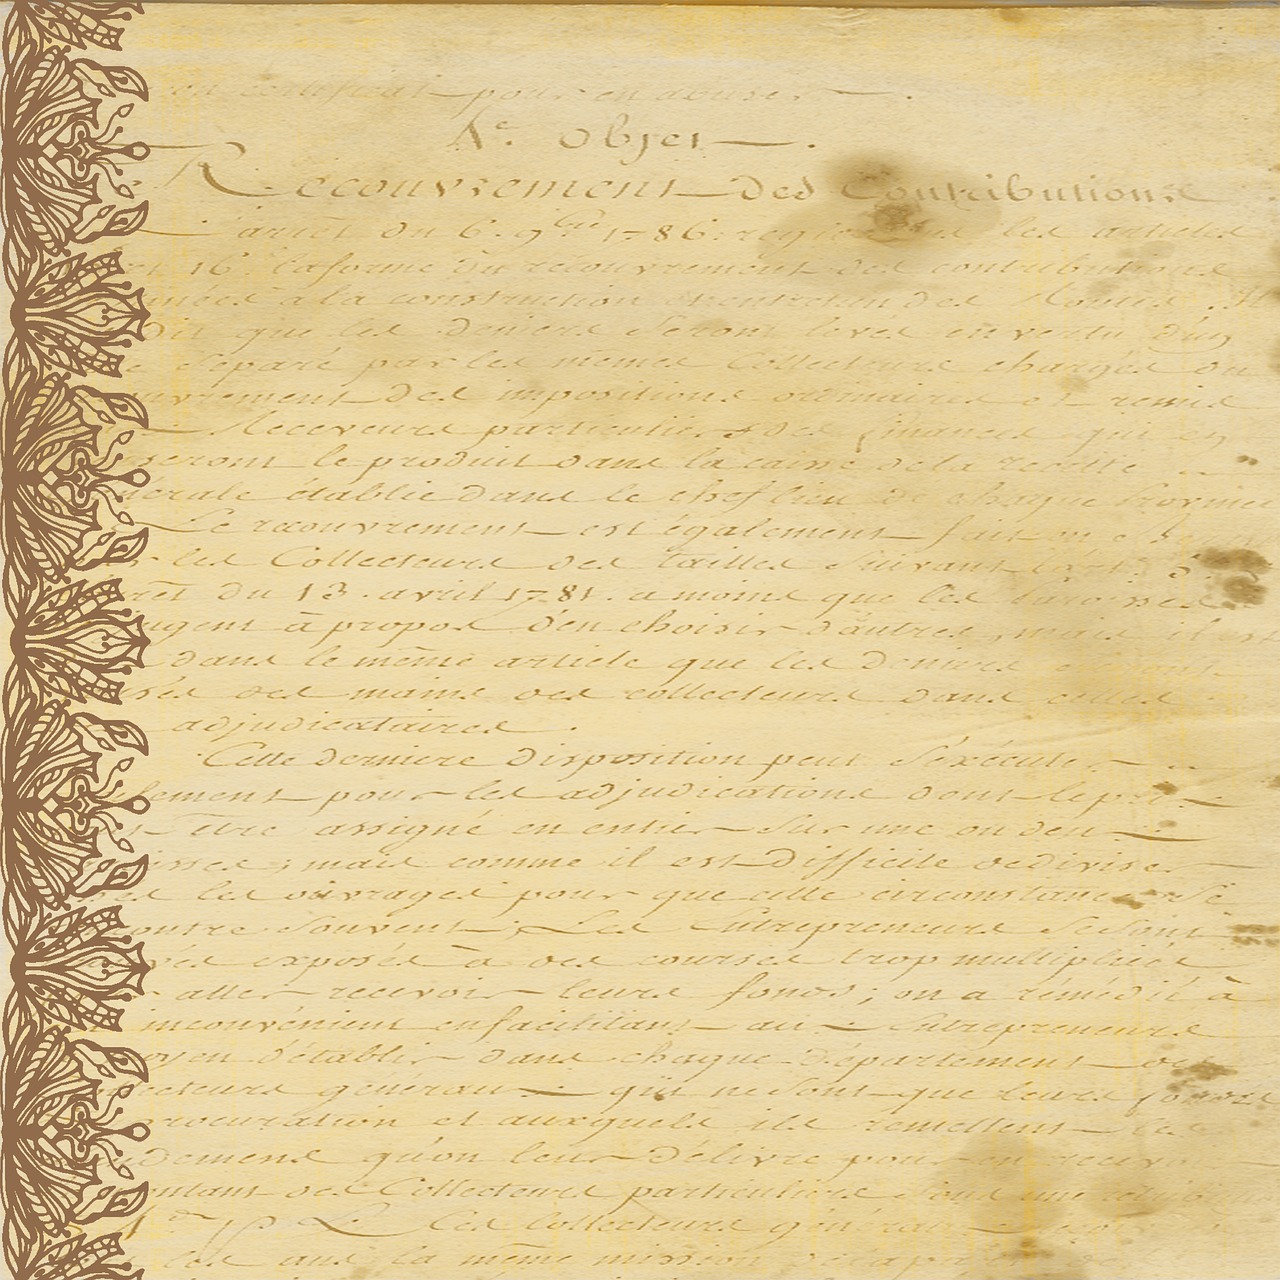 on certificat pour en abuser
1.e Objet
Recouvrement des Contributions
L'arrêt du 6. 9.bre 1786. les articles
et 16. la forme du recouvrement des contributions
à la construction et entretien des Routes.
Dit que les deniers Seront levés en vertu d'un
Séparé par les mêmes Collecteurs chargés du
uvrement des impositions ordinaires et remis
Receveurs particuliers des finances qui en
seront le produit dans la caisse de la recette
nerale établie dans le chef lieu de chaque Province
Le recouvrement est également fait
les Collecteurs des tailles Suivant
rêt du 13. avril 1781. a moins que les Paroisses
ugent à propos d'en choisir d'autres, mais il est
dans le même article que les deniers
des mains des collecteurs dans celles
adjudicataires.
Cette derniere disposition peut S'exécuter
lement pour les adjudications dont le prix
être assigné en entier Sur une ou deux
mais comme il est difficile de diviser
les ouvrages pour que cette circonstance Se
contre Souvent, Les Entrepreneurs Se Sont
vés exposés à des courses trop multipliées
aller recevoir leurs fonds; on a remédié à
inconvénient en facilitant aux Entrepreneurs
oyen d'établir dans chaque département des
ecteurs généraux qui ne sont que leurs fondés
rocuration et auxquels ils remettent les
demens qu'on leur délivre pour recevoir
ntant des Collecteurs particuliers
Ces Collecteurs généraux
la même mission